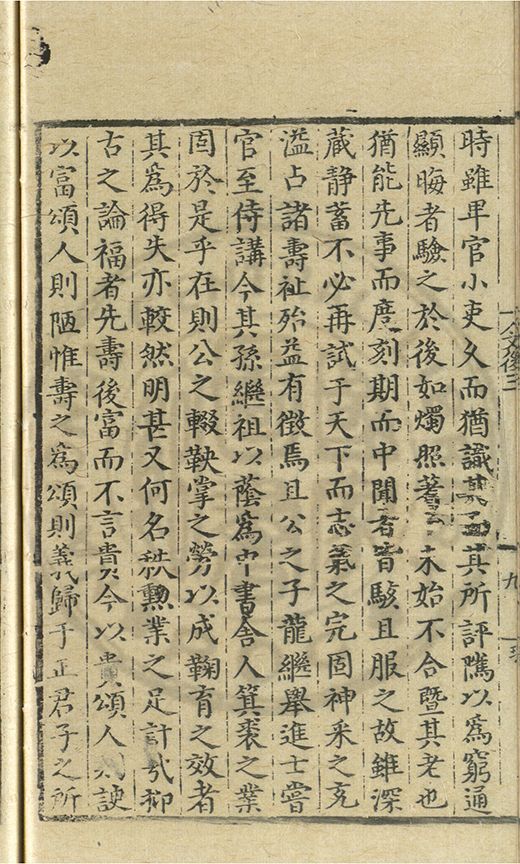 時雖卑官小吏久而猶識其面其所評隲以爲窮通
顯晦者驗之於後如燭照蓍未始不合暨其老也
猶能先事而度刻期而中聞者皆駭且服之故雖深
蔵静蓄不必再試于天下而志氣之完固神采之充
溢占諸壽祉殆益有徴焉且公之子龍繼舉進士嘗
官至侍講今其孫繼祖以蔭爲中書舍人箕裘之業
固於是乎在則公之輟鞅掌之勞以成鞠育之效者
其爲得失亦較然明甚又何名秩勲業之足計㢤抑
古之論福者先壽後富而不言貴今以貴頌人則諛
以富頌人則陋惟壽之爲頌則義歸于正君子之所
文後三
九